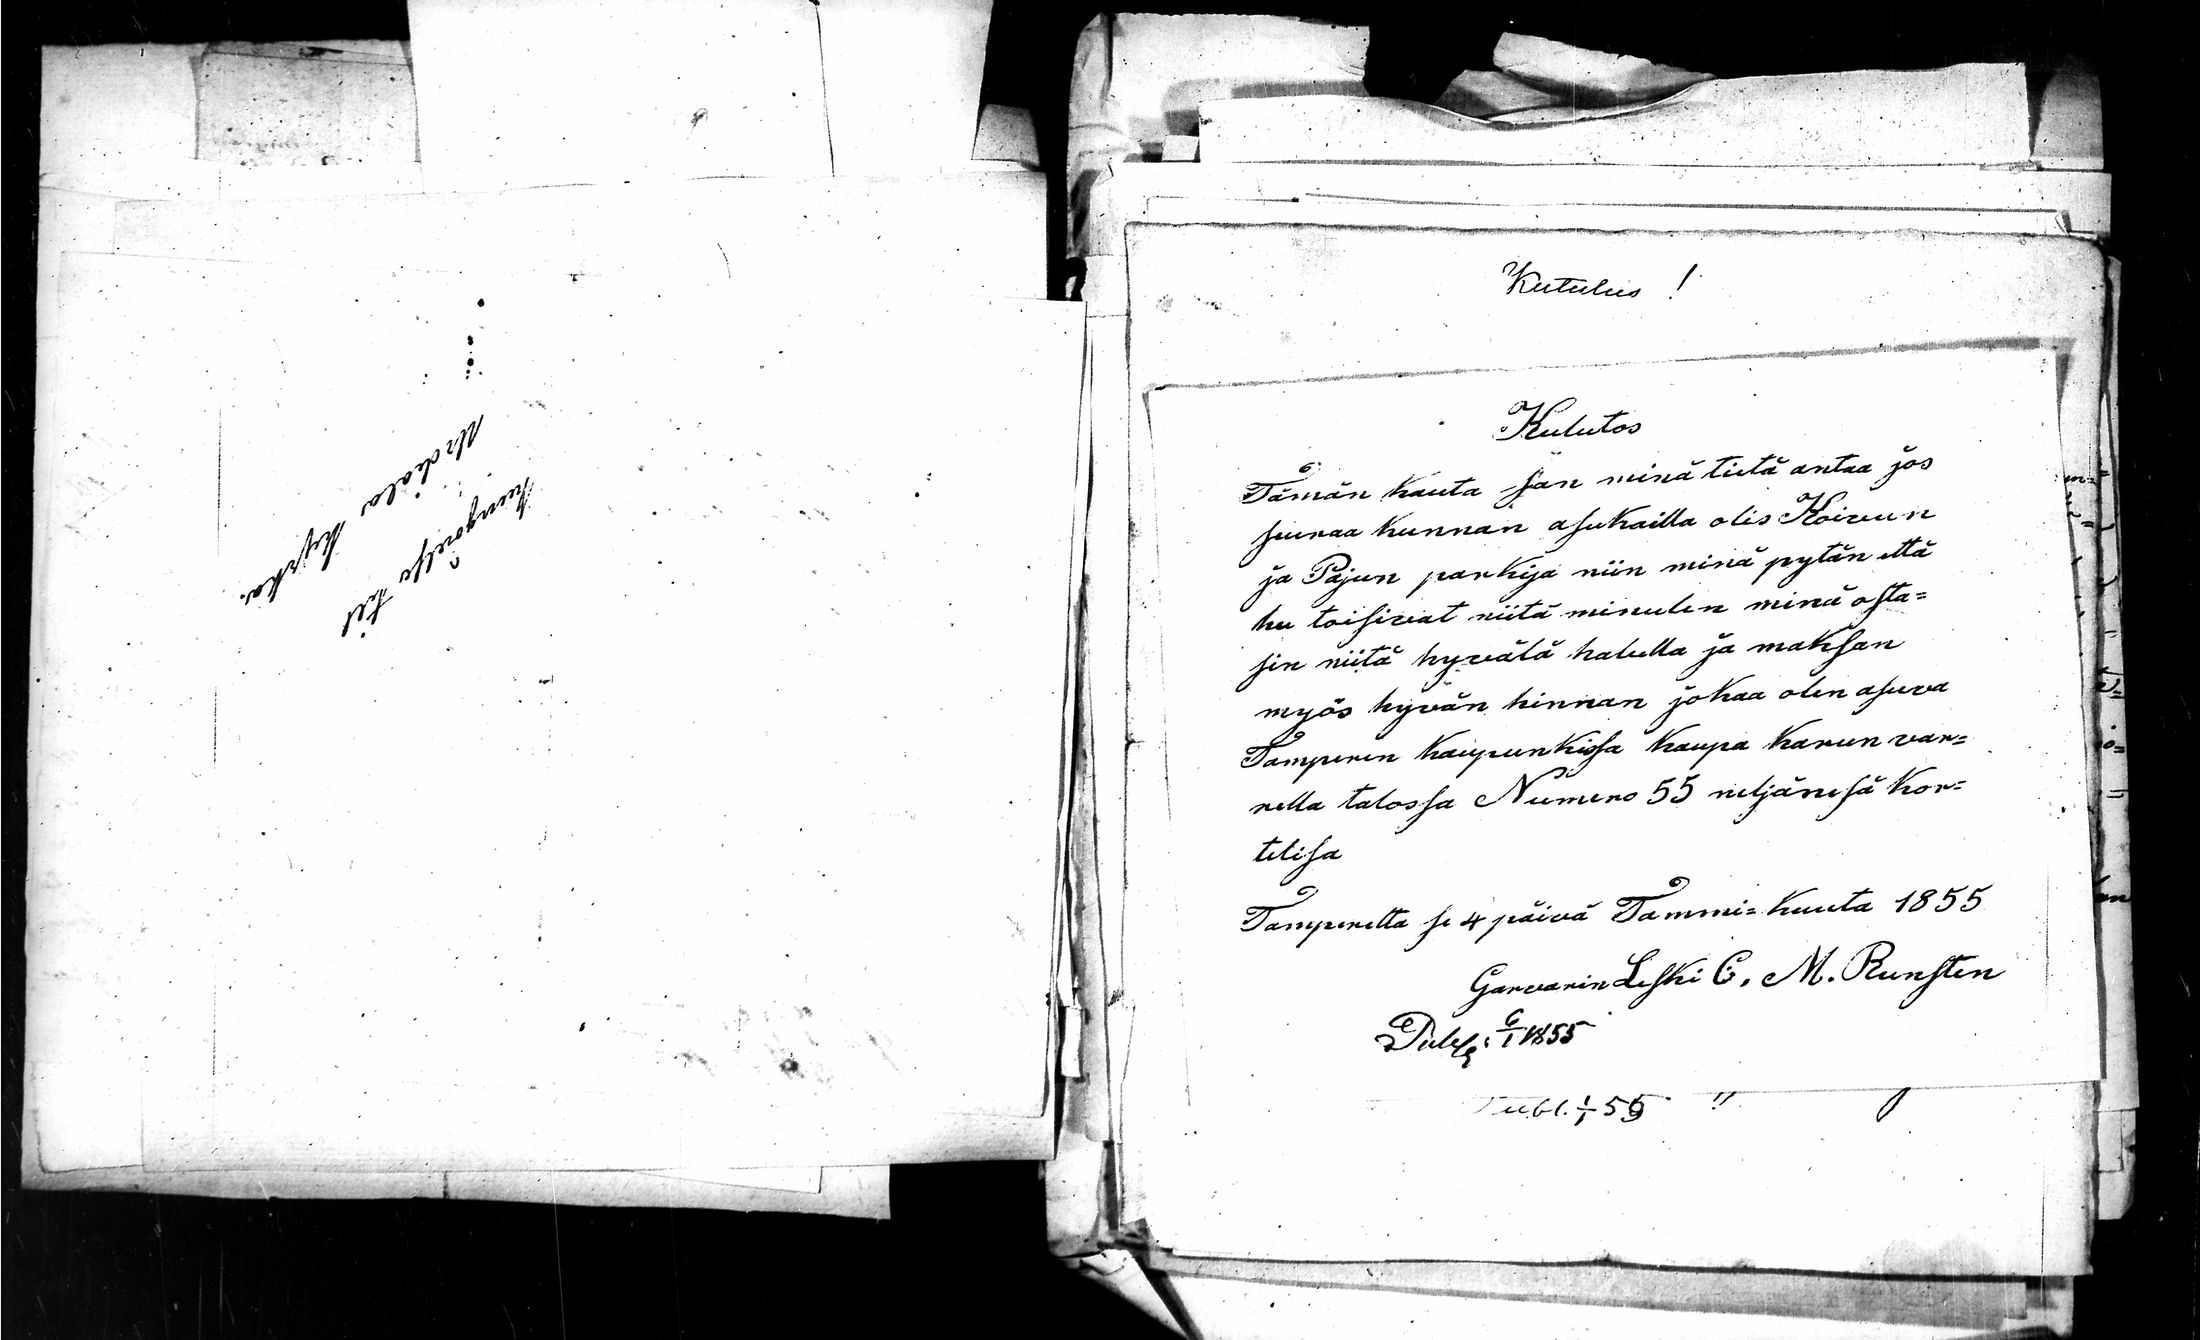 Urdiala kyrka.
Kutulus !
Kulutos
Tämän kauta san minä tietä antaa jos
seuraa kunnan asukailla olis Koivun
ja Pajun parkija niin minä pytän että
he toisivat niitä minulen minä osta=
sin niitä hyvälä halulla ja maksan
myös hyvän hinnan jokaa olen asuva
Tamperen kaupunkissa kaupa karun var=
rella talossa Numero 55 neljänesä kor=
telisa
Tamperetta se 4 päivä Tammi=kuuta 1855
Garvarin Leski C. M. Runsten
6/1 1855
Publ. 1/1 55